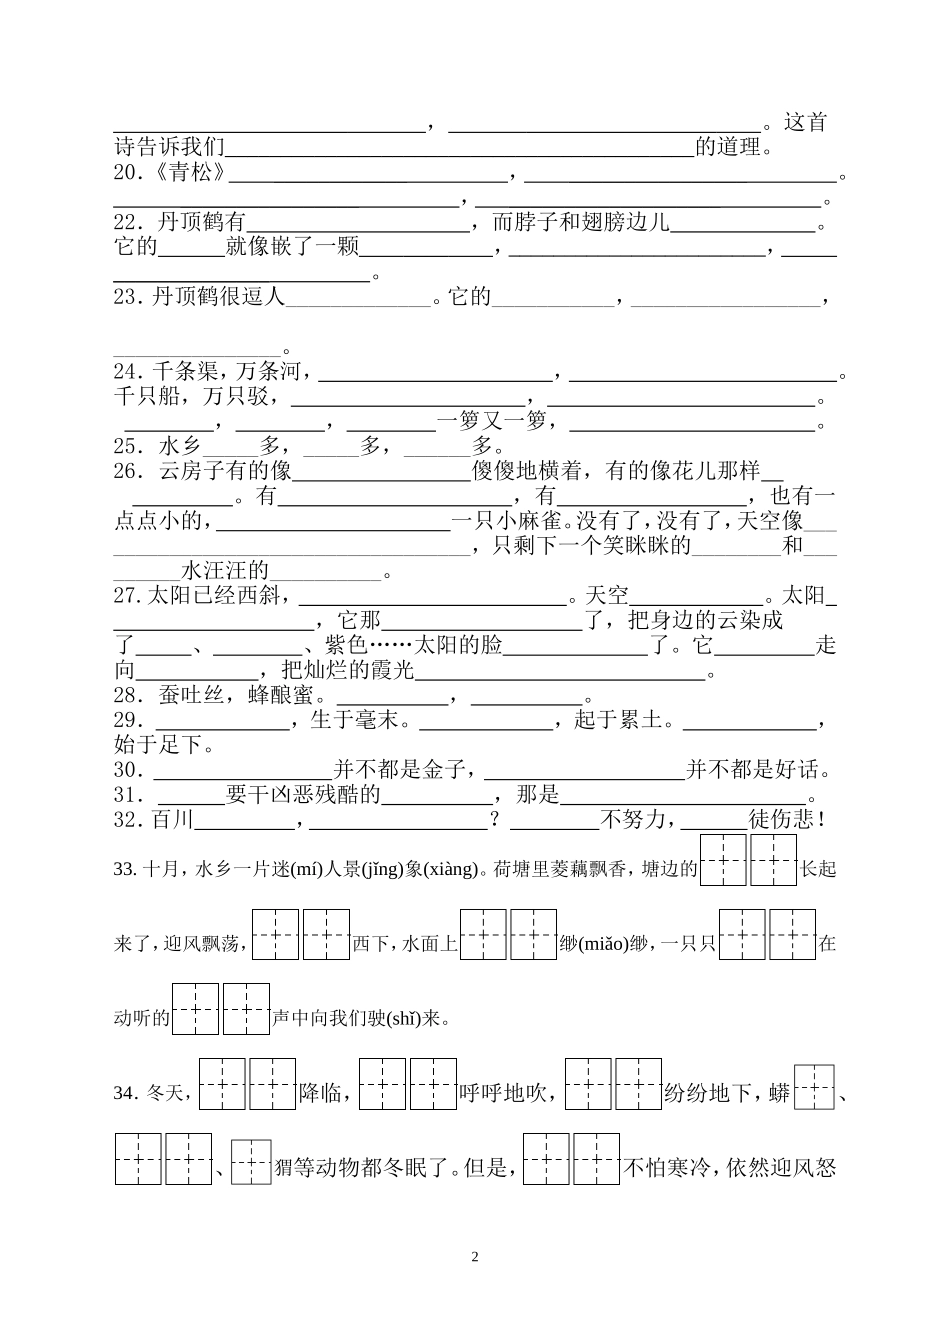 ，。这首
诗告诉我们的道理。
20.《青松》，。
，。
22．丹顶鹤有，而脖子和翅膀边儿。
它的就像嵌了一颗，，
。
23．丹顶鹤很逗人。它的，，
。
24．千条渠，万条河，，。
千只船，万只驳，，。
，，一箩又一箩，。
25．水乡多，多，多。
26．云房子有的像傻傻地横着，有的像花儿那样
。有，有，也有一
点点小的，一只小麻雀。没有了，没有了，天空像
，只剩下一个笑眯眯的和
水汪汪的。
27.太阳已经西斜，。天空。太阳
，它那了，把身边的云染成
了、、紫色……太阳的脸了。它走
向，把灿烂的霞光。
28．蚕吐丝，蜂酿蜜。，。
29．，生于毫末。，起于累土。，
始于足下。
30．并不都是金子，并不都是好话。
31．要干凶恶残酷的，那是。
32．百川，？不努力，徒伤悲！
33．十月，水乡一片迷(mí)人景(jǐng)象(xiàng)。荷塘里菱藕飘香，塘边的长起
来了，迎风飘荡，西下，水面上缈(miǎo)缈，一只只在
动听的声中向我们驶(shǐ)来。
34．冬天，降临，呼呼地吹，纷纷地下，蟒、
、猬等动物都冬眠了。但是，不怕寒冷，依然迎风怒
2